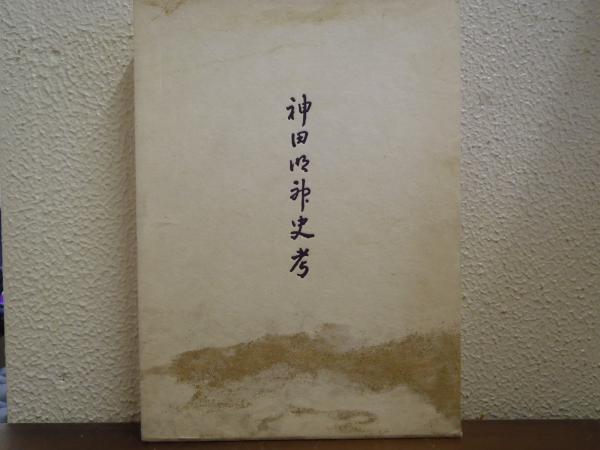 神田明神史考